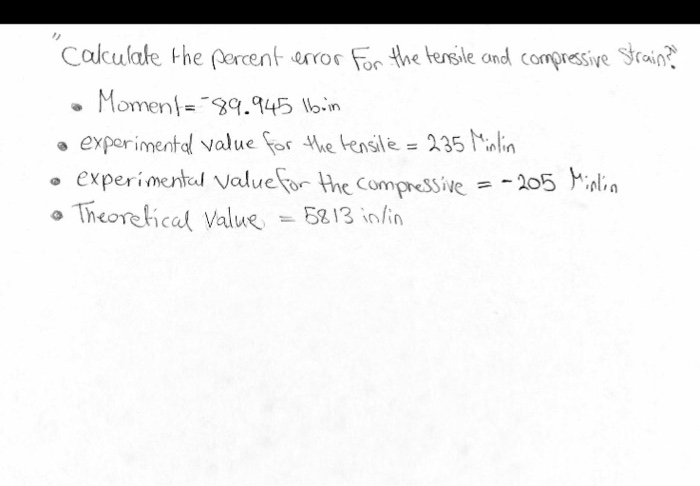 "Calculate the percent error For the tensile and compressive strain?"
• Moment = -89.945 lb.in
• experimental value for the tensile = 235 Min/in
• experimental value for the compressive = -205 Min/in
• Theoretical Value = 5813 in/in